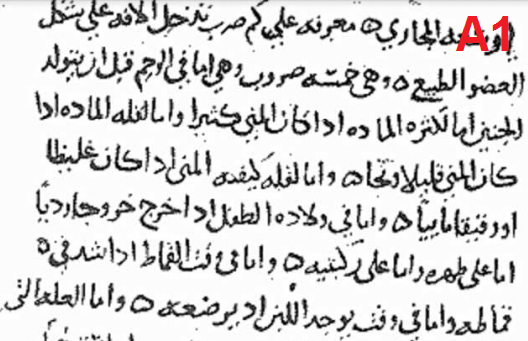 A1
المجاري ه معرفة على كم ضرب تدخل الافه على شكل
العضو الطبيعي ه وهي خمسة ضروب وهي اما في الرحم قبل ان يتولد
الجنين اما لكثره الماده اذا كان المني كثيرا واما لقله الماده اذا
كان المني قليلا واما لقله كيفيه المني اذا كان غليظا
او رقيقا مائيا ه واما في ولاده الطفل اذا اخرج خروجا رديا
اما على ظهره واما على ركبتيه ه واما في وقت القماط اذا شد في ه
قماطه واما في وقت يوجد اللبن اذ يرضعه ه واما العله التي